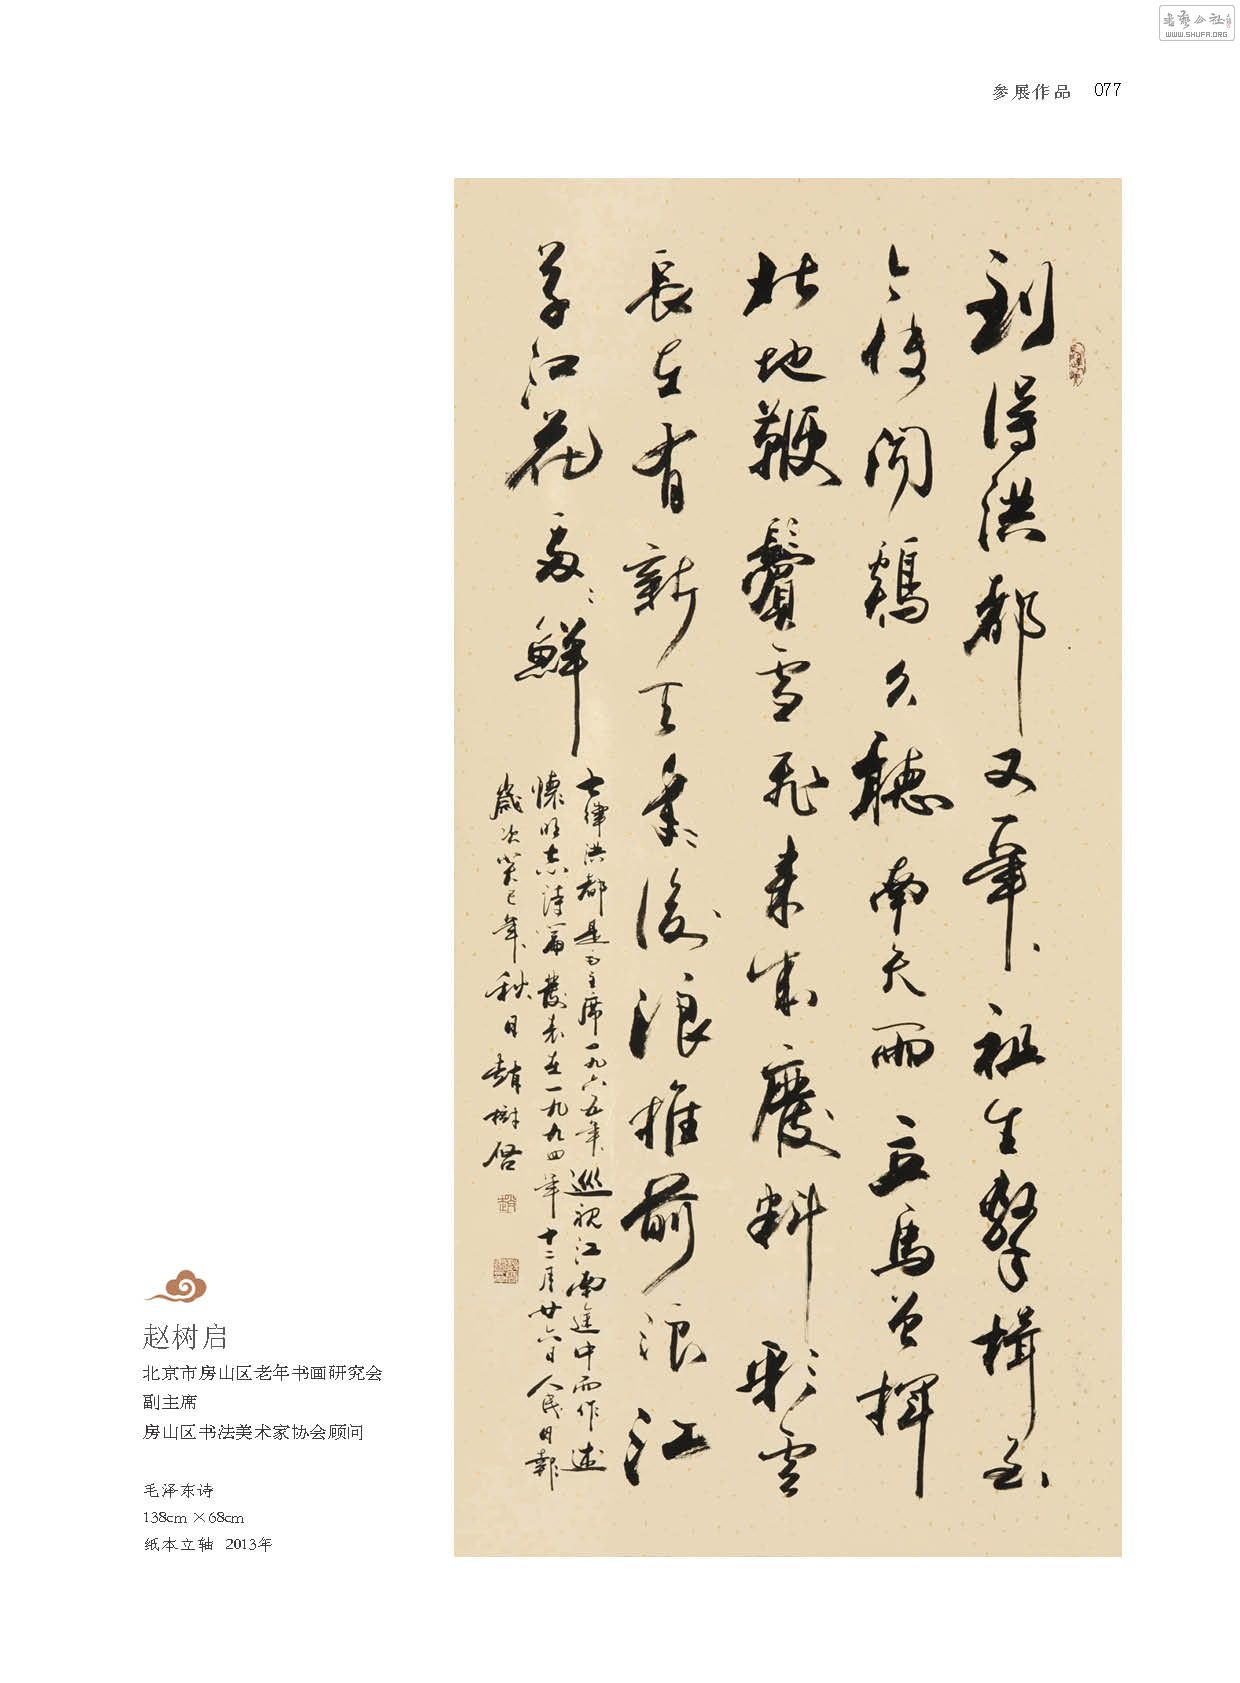 书艺公社
WWW.SHUFA.ORG
参展作品 077
到得洪都又一年祖生擊楫至
今传闻鷄久聽南天雨立馬曾揮
北地鞭鬢雪飛来成廢料彩雲
長在有新天年々後浪推前浪江
草江花處々鮮
七律洪都是毛主席一九六五年巡視江南途中而作述
懷明志詩篇發表在一九九四年十二月廿六日人民日報
歲次癸巳年秋日趙樹启
赵树启
北京市房山区老年书画研究会
副主席
房山区书法美术家协会顾问
毛泽东诗
138cm×68cm
纸本立轴 2013年